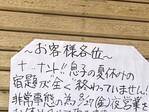 ～お客様各位～
ナ、ナント!! 息子の夏休みの
宿題が全く終わっていません!
非常事態の為、
夜営業を